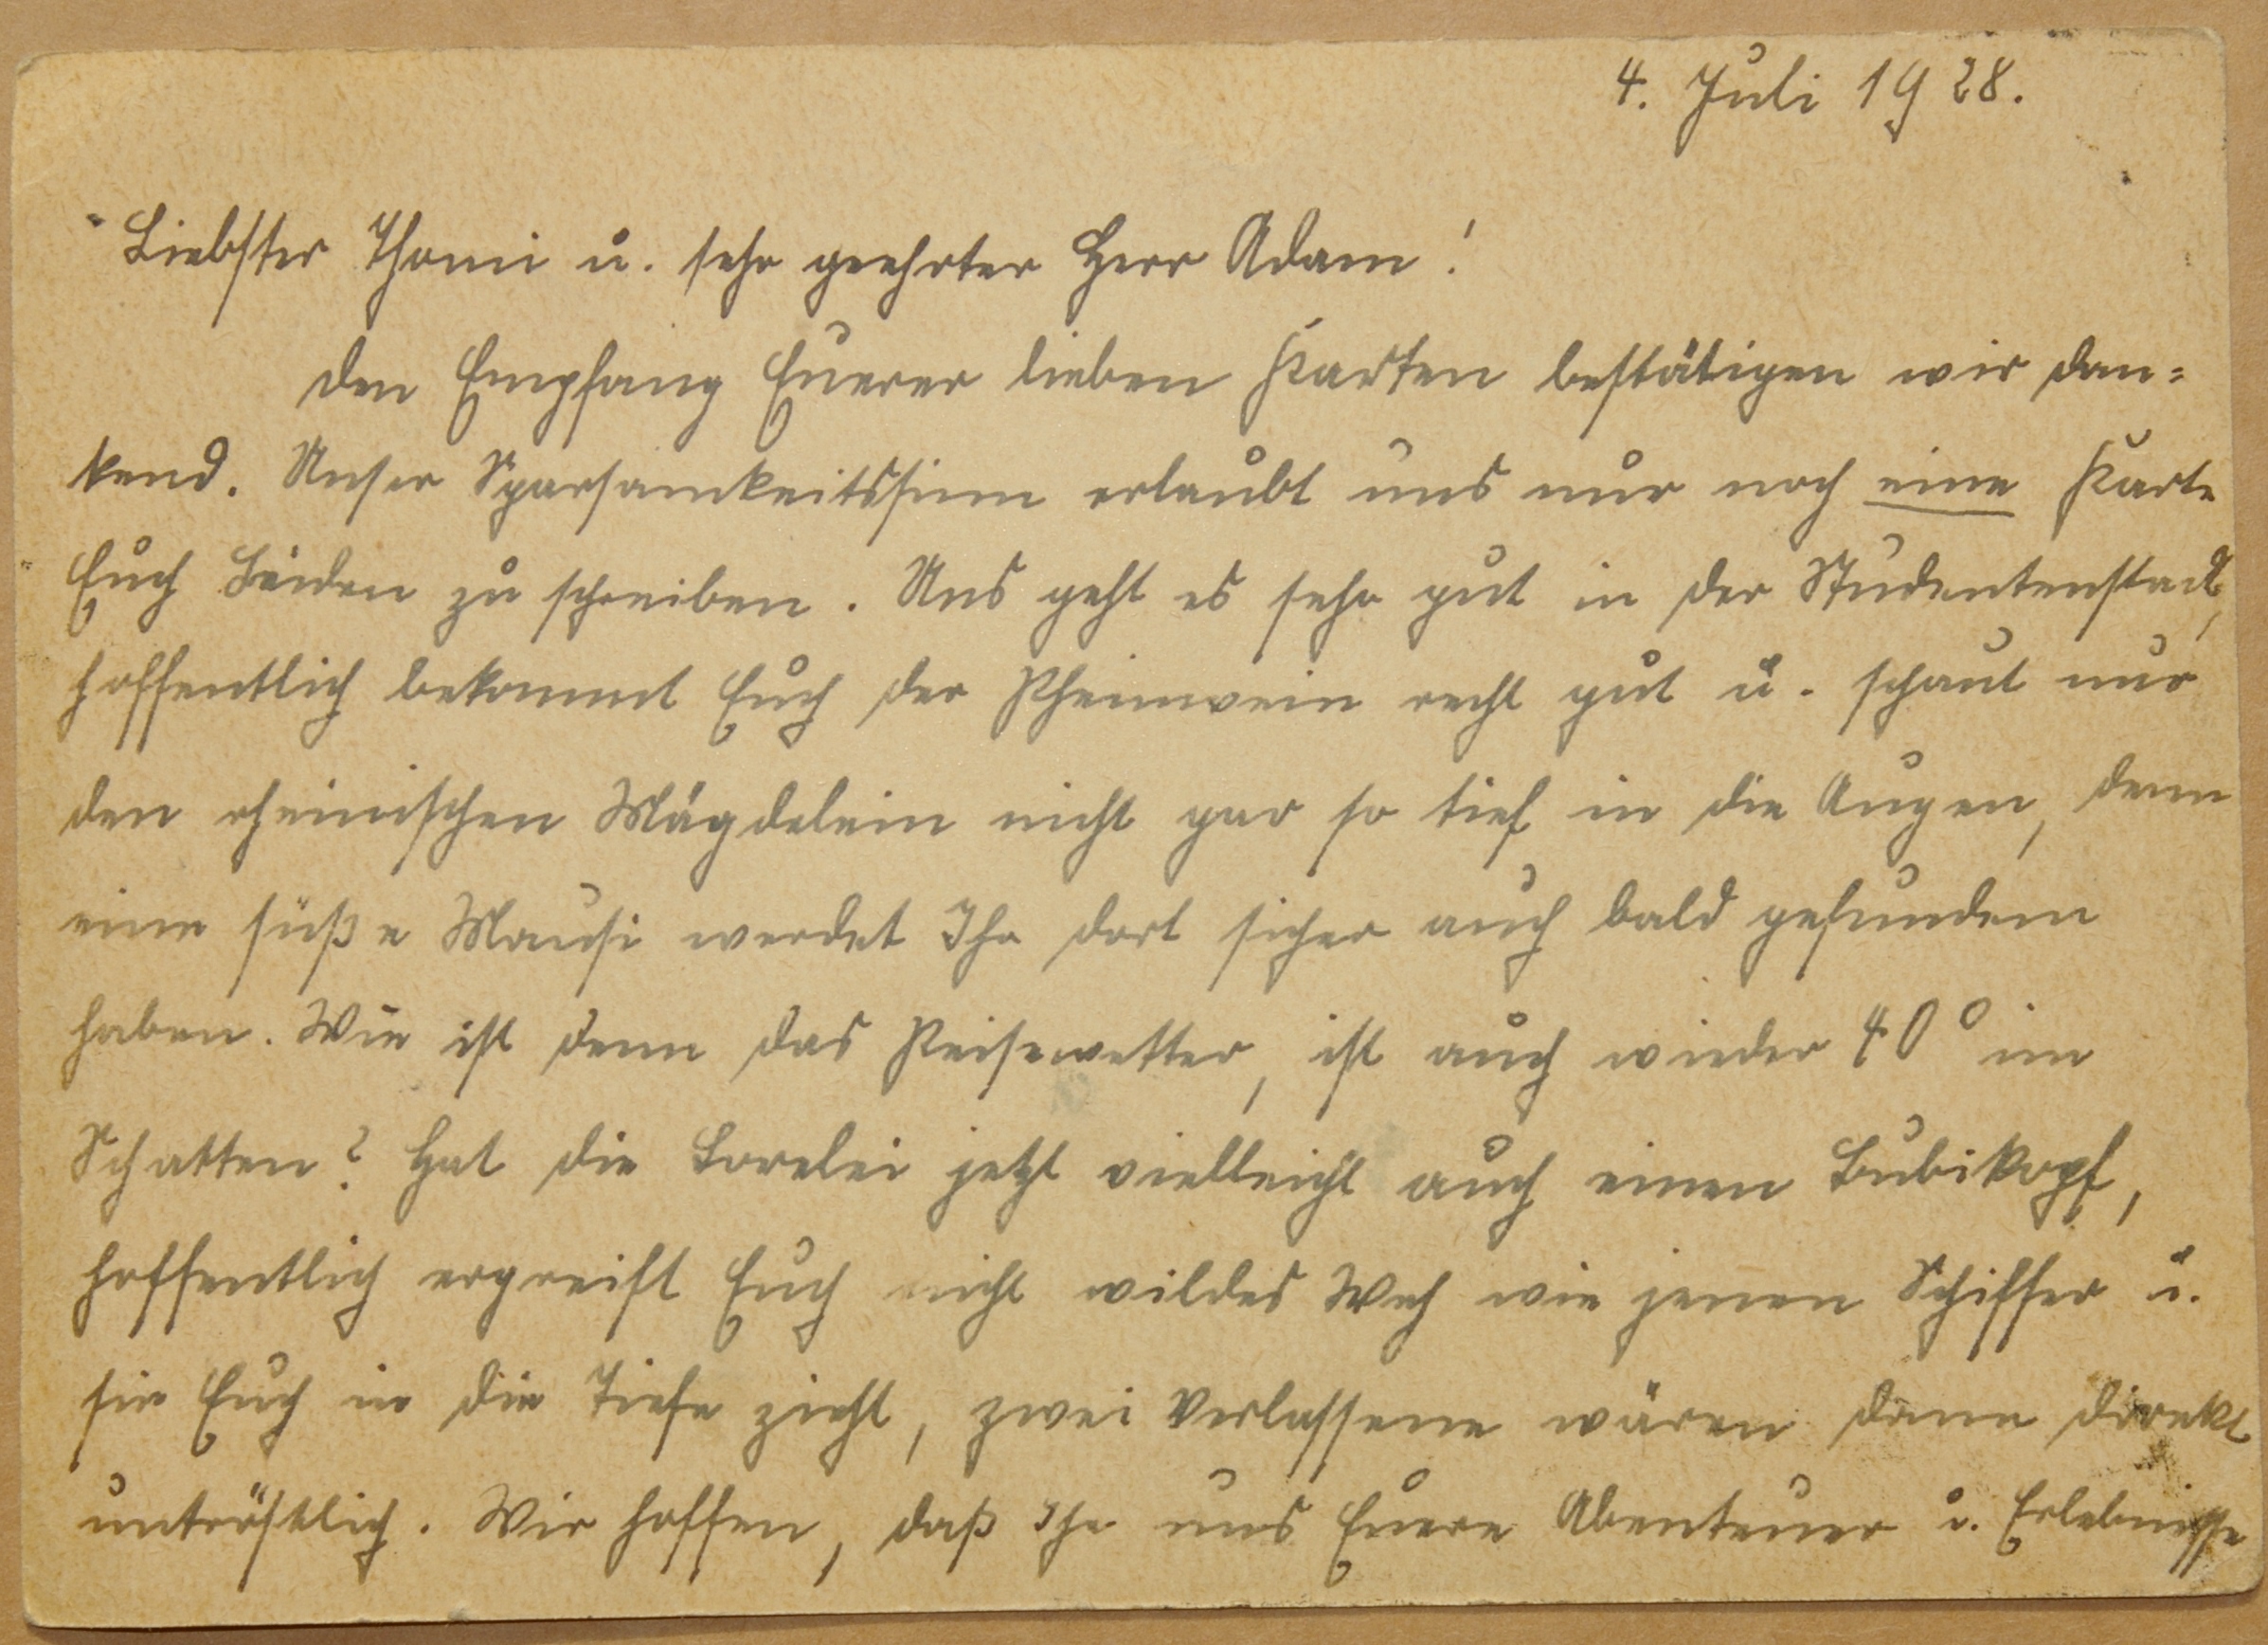 4. Juli 1928.
Liebster Thomi u. sehr geehrter Herr Adam!
Den Empfang Euerer lieben Karten bestätigen wir dan=
kend. Unser Sparsamkeitssinn erlaubt uns nur noch eine Karte
Euch Beiden zu schreiben. Uns geht es sehr gut in der Studentenstadt,
hoffentlich bekommt Euch der Rheinwein recht gut u. schaut nur
den rheinischen Mägdelein nicht gar so tief in die Augen, denn
eine süße Mausi werdet Ihr dort sicher auch bald gefunden
haben. Wie ist denn das Reisewetter, ist auch wieder 40° im
Schatten? Hat die Lorelei jetzt vielleicht auch einen Bubikopf,
hoffentlich ergreift Euch nicht wildes Weh wie jenen Schiffer u.
sie Euch in die Tiefe zieht, zwei Verlassene wären dann direkt
untröstlich. Wir hoffen, daß Ihr uns Euere Abenteuer u. Erlebnisse